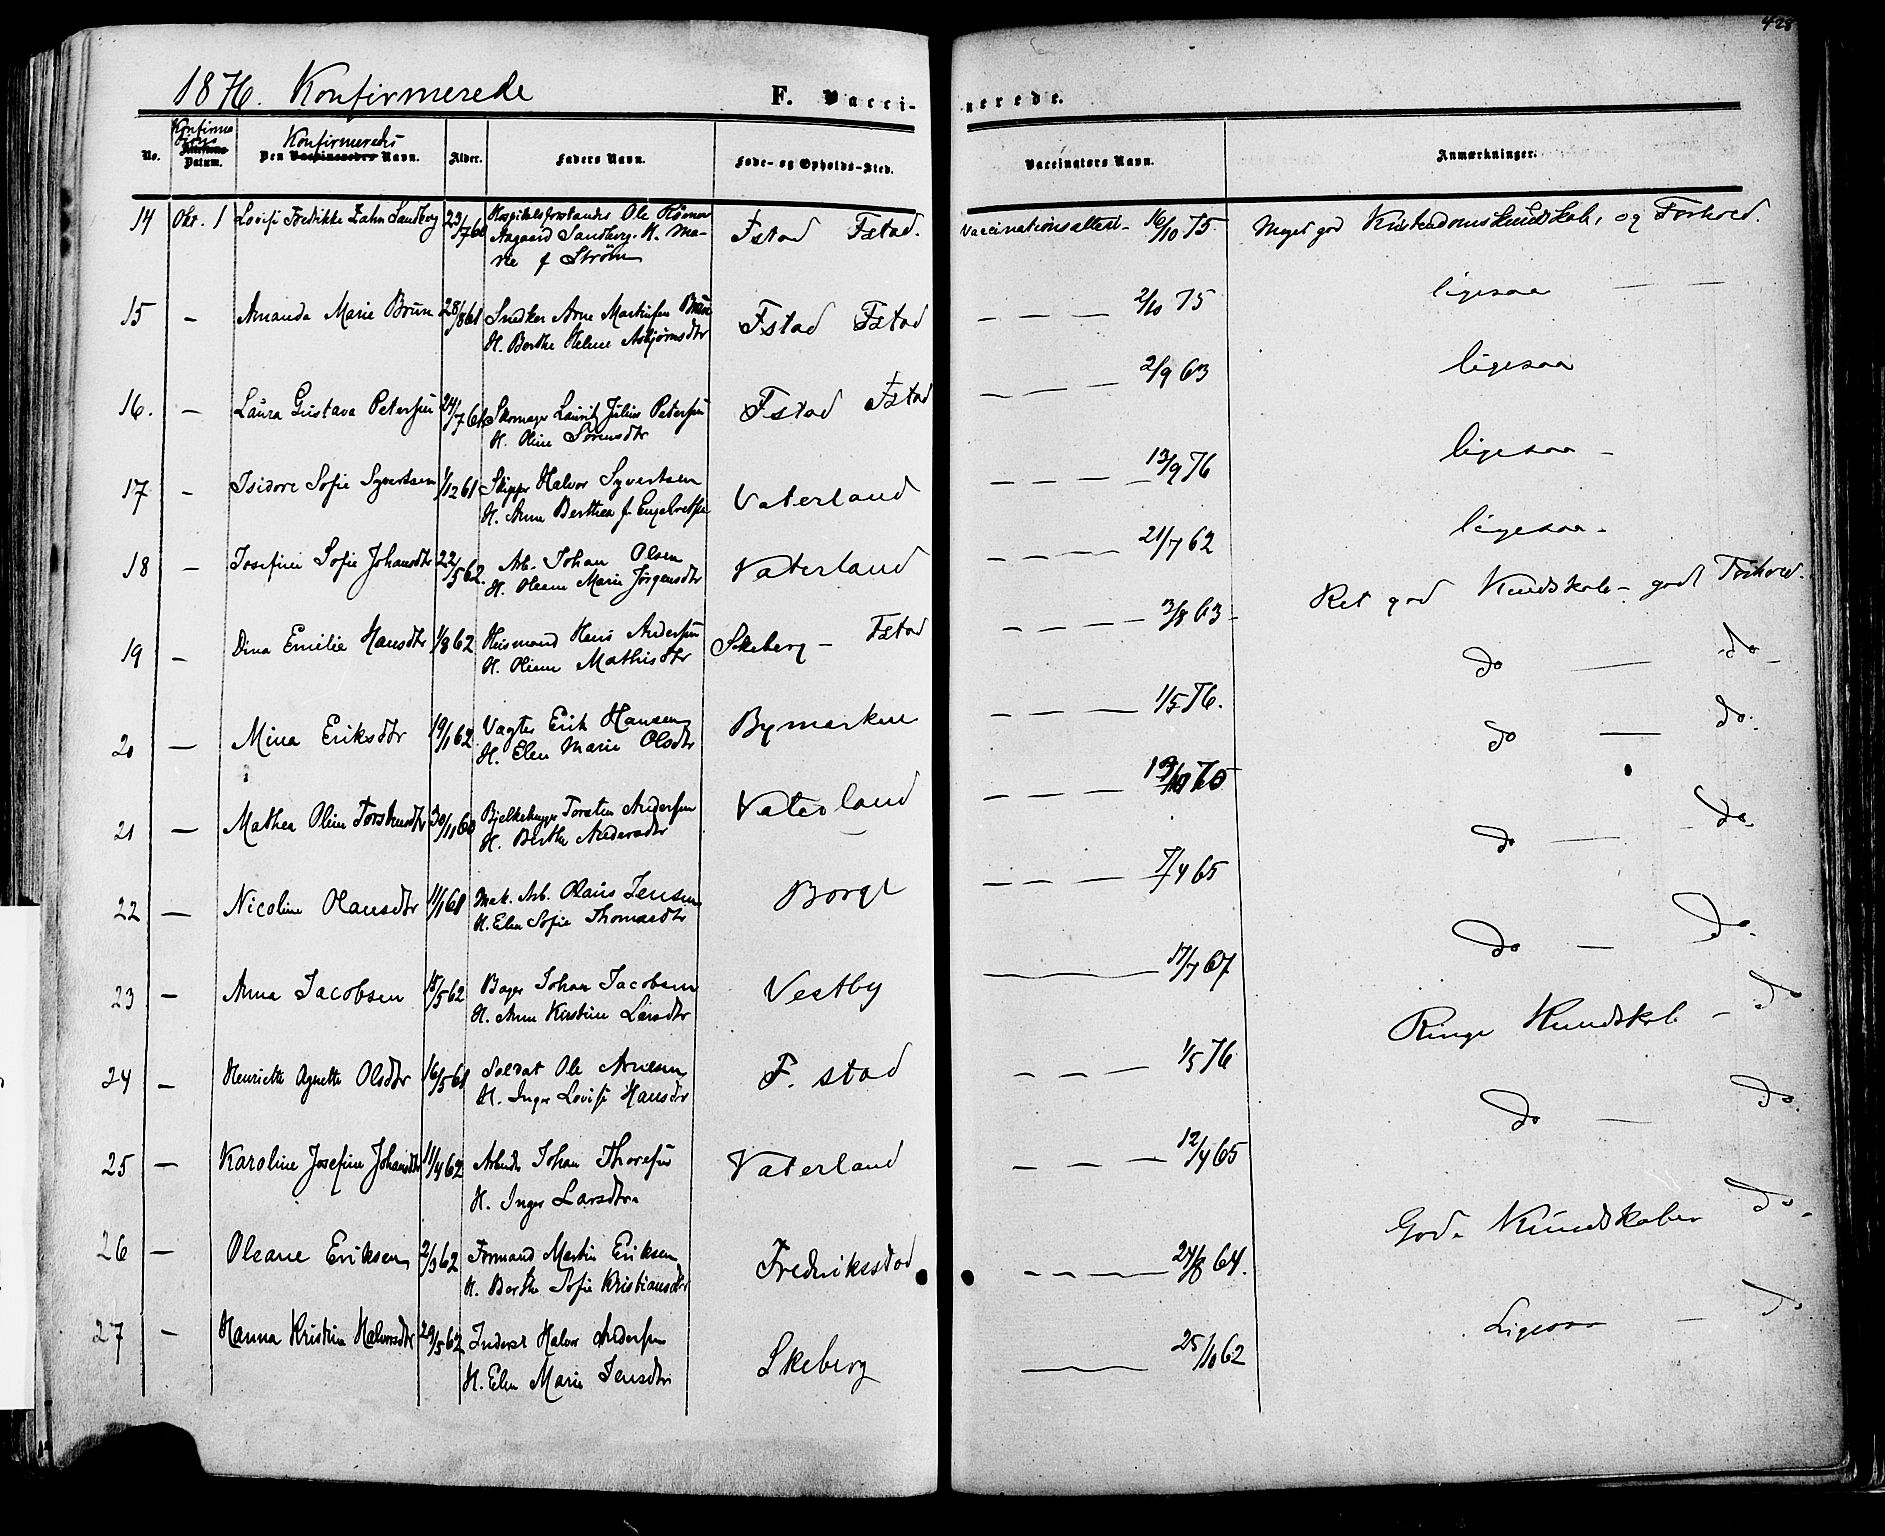 428
1876. Konfirmerede
F. Vaccinerede.
No. Konfirma tions Datum. Den Konfirmeredes Vaccineredes Navn. Alder. Faders Navn. Føde- og Opholds-Sted. Vaccinators Navn. Anmærkninger.
14 Okt. 1 Lovise Fredikke Zahn Sandberg 23/7 60 Hospitalsforstander Ole Rømer Fstad Fstad. Vaccinationsattest 16/10 75 Meget god Kristendomskundskab, og Forhold.
Aagaard Sandberg. H. Ma-
rie f Strøm
15 - Amanda Marie Brun 28/8 61 Snedker Arne Martinsen Brun Fstad Fstad — — — 2/10 75 ligesaa — —
H. Berthe Helene Asbjørnsdtr
16. - Laura Gustava Petersen 24/7 61 Skomager Lauritz Julius Petersen Fstad Fstad — — — 2/9 63 ligesaa
H. Oline Sørensdtr
17 - Isidore Sofie Syvertsen 1/12 61 Skipper Halvor Syvertsen Vaterland — — — 13/9 76 ligesaa -
H. Anne Berthea f. Engebretsen
18 - Josefine Sofie Johansdtr 22/5 62. Arb. Johan Olsen Vaterland — — — 21/7 62 ligesaa -
H. Oleane Marie Jørgensdtr
19 - Dina Emilie Hansdtr 1/8 62 Huusmand Hans Andersen Skeberg - Fstad — — — 3/8 63 - Ret god Kundskab - godt Forhold.
H. Oleane Mathisdtr
20 — Mina Eriksdtr 19/1 62 Vægter Erik Hansen Bymarken — — — 1/5 76. do — do -
H. Elen Marie Olsdtr
21 — Mathea Oline Torstensdtr 30/11 60 Bjelkehugger Torsten Andersen Vaterland — — — 19/10 70 do — do.
H. Berthe Andersdtr
22 — Nicoline Olausdtr 11/1 61 Mek. Arb. Olaus Jensen Borge — — — 7/4 65 do — do.
H. Elen Sofie Thomasdtr
23 — Anna Jacobsen 15/5 62 Bager Johan Jacobsen Vestby — 17/7 67 do — do.
H. Anne Kirstine Larsdtr
24 - Henriette Agnethe Olsdtr 16/5 61 Soldat Ole Arnesen F. stad — — — 1/5 76 Ringe Kundskab - do
H. Inger Lovise Hansdtr
25 — Karoline Josefine Johansdtr 11/4 62 Arbeider Johan Thoresen Vaterland — — — 12/4 65 do — do.
H. Inger Larsdtr.
26 — Oleane Eriksen 2/3 62 Formand Martin Eriksen Fredriksstad — — — 24/8 64. God. Kundskaber do.
H. Berthe Sofie Kristiansdtr
27 - Hanna Kristine Halvorsdtr 29/5 62 Inderst Halvor Andersen Skeberg — 25/10 62 Ligesaa - do
H. Elen Marie Jensdtr